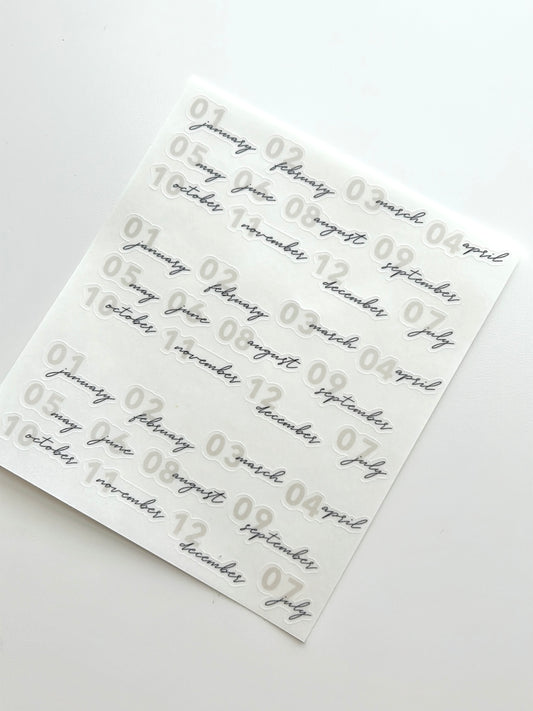 01 january 02 february 03 march 04 april
05 may 06 june 08 august 09 september 07 july
10 october 11 november 12 december
01 january 02 february 03 march 04 april
05 may 06 june 08 august 09 september 07 july
10 october 11 november 12 december
01 january 02 february 03 march 04 april
05 may 06 june 08 august 09 september 07 july
10 october 11 november 12 december